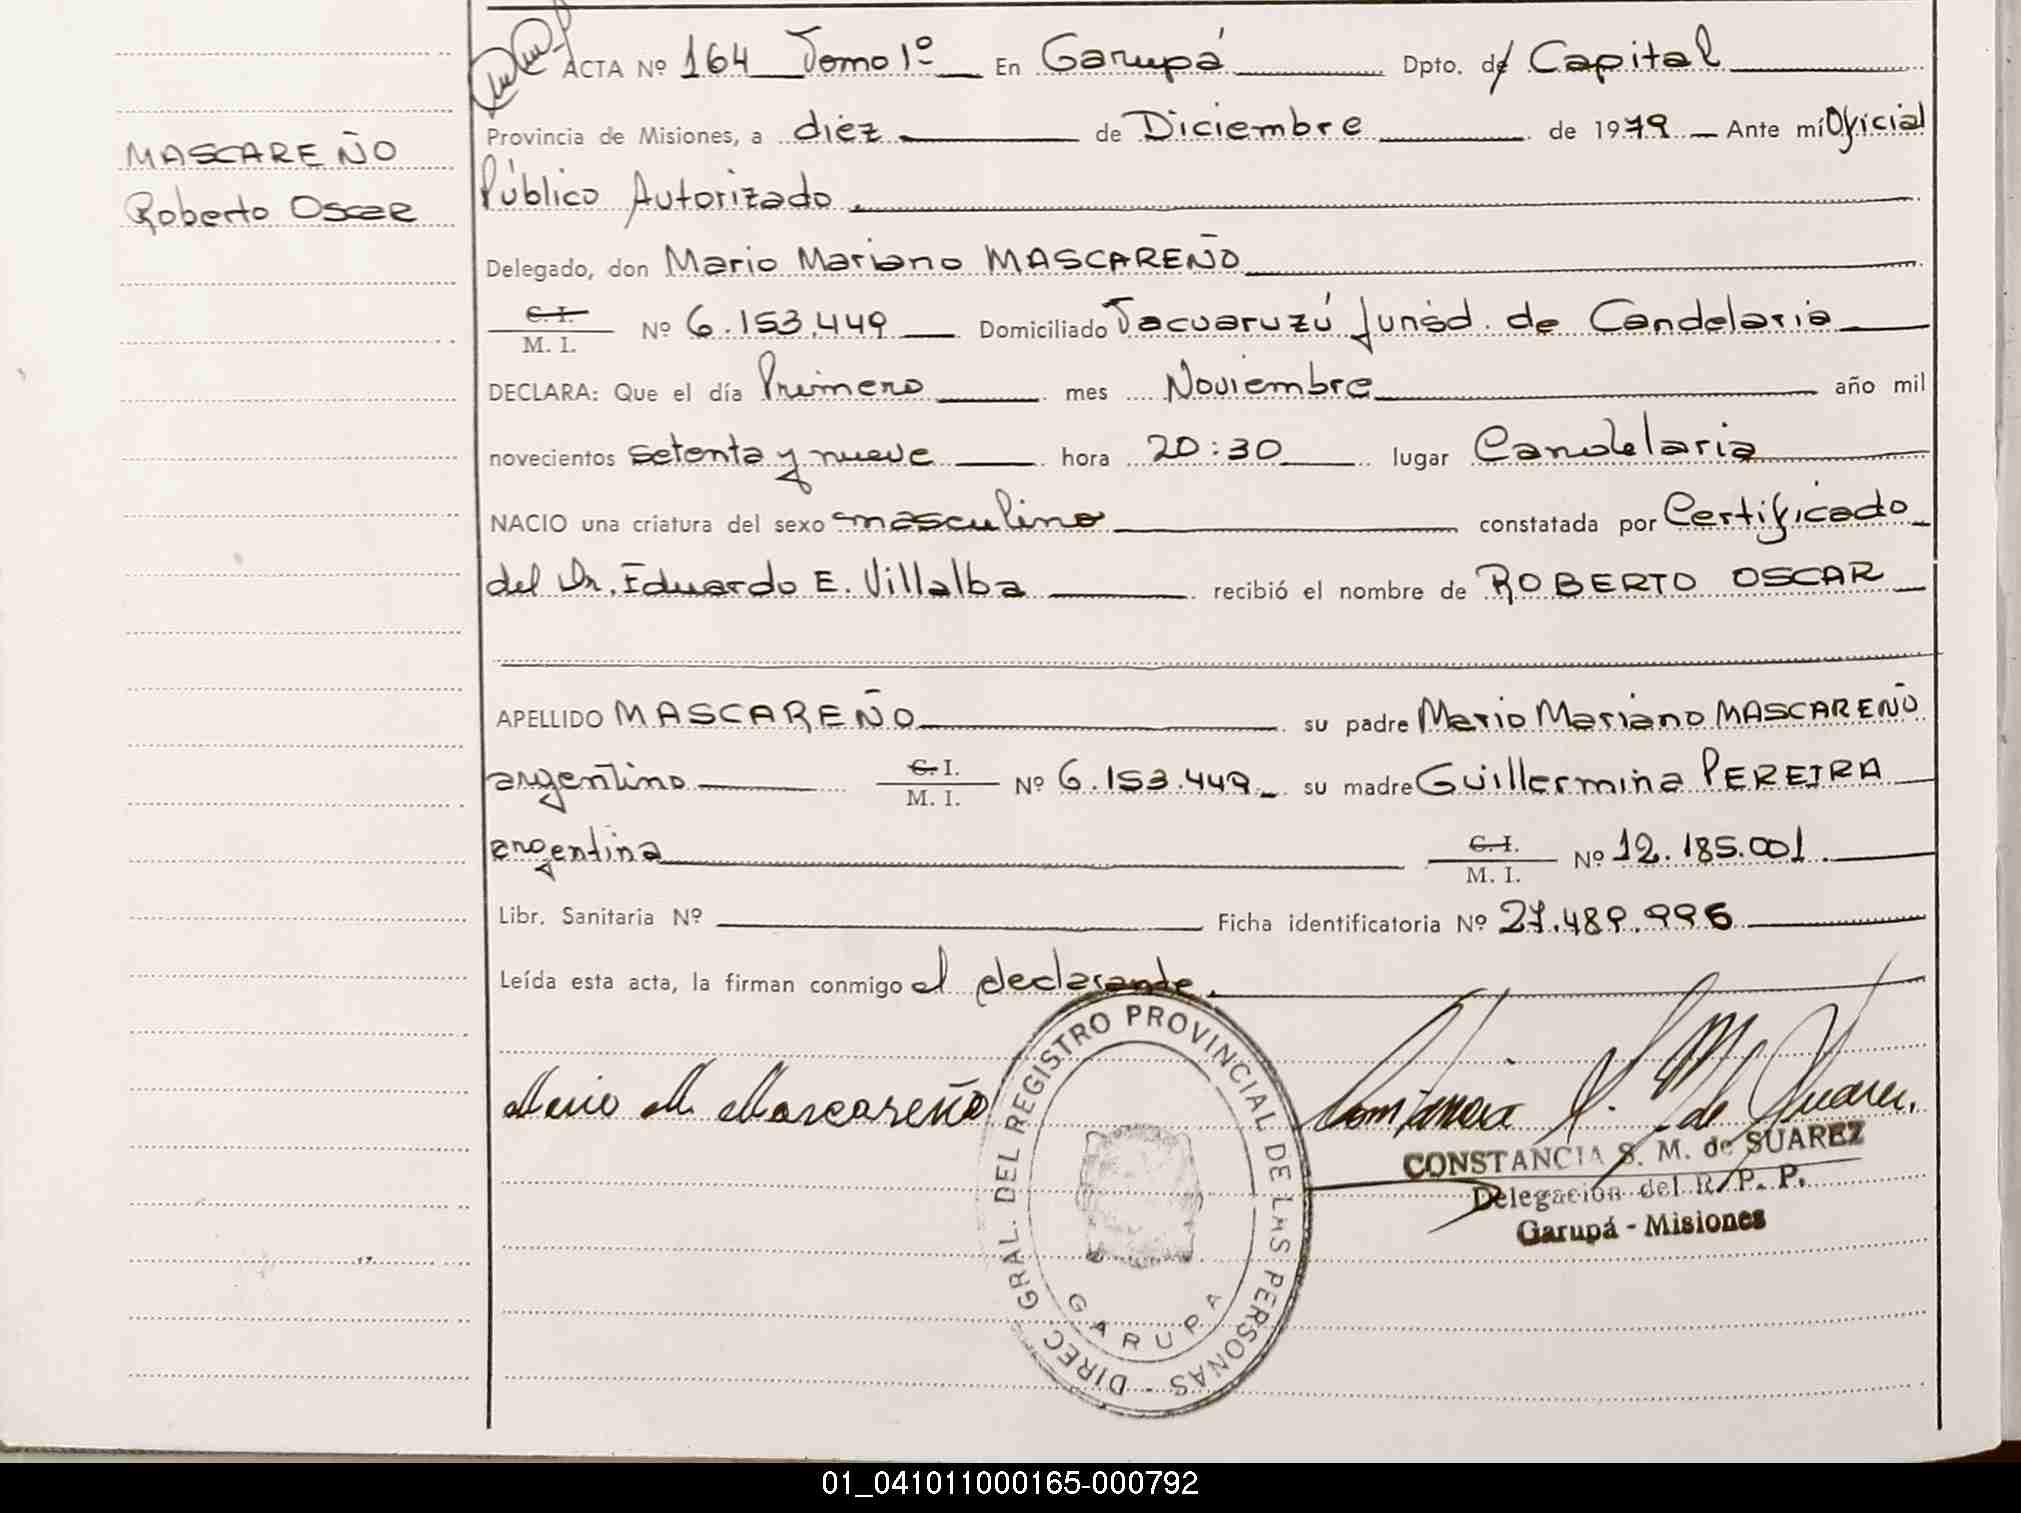 ACTA Nº 164 Tomo 1º En Garupá Dpto. de Capital
Provincia de Misiones, a diez de Diciembre de 1979 Ante mí Oficial
MASCAREÑO
Roberto Oscar
Público Autorizado.
Delegado, don Mario Mariano MASCAREÑO
C. I.
M. I. Nº 6.153.449 Domiciliado Tacuaruzú Jurisd. de Candelaria
DECLARA: Que el día Primero mes Noviembre año mil
novecientos setenta y nueve hora 20:30 lugar Candelaria
NACIO una criatura del sexo masculino constatada por Certificado
del Dr. Eduardo E. Villalba recibió el nombre de ROBERTO OSCAR
APELLIDO MASCAREÑO su padre Mario Mariano MASCAREÑO
argentino C. I.
M. I. Nº 6.153.449 su madre Guillermina PEREIRA
argentina C. I.
M. I. Nº 12.185.001
Libr. Sanitaria Nº Ficha identificatoria Nº 27.489.996
Leída esta acta, la firman conmigo el declarante.
Mario M. Mascareño
DIREC GRAL. DEL REGISTRO PROVINCIAL DE LAS PERSONAS -
GARUPA
Constancia S. M. de Suarez.
CONSTANCIA S. M. de SUAREZ
Delegación del R. P. P.
Garupá - Misiones
01_041011000165-000792